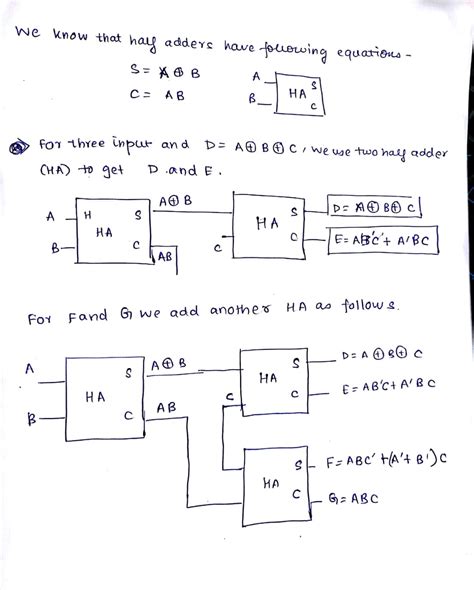 We know that half adders have following equations -
S = A ⊕ B
C = AB
A
B
HA
S
C
For three input and D = A ⊕ B ⊕ C, we use two half adder
(HA) to get D and E.
A
B
H
HA
S
C
A ⊕ B
AB
C
HA
S
C
D = A ⊕ B ⊕ C
E = AB'C + A'BC
For F and G we add another HA as follows.
A
B
HA
S
C
A ⊕ B
AB
C
HA
S
C
D = A ⊕ B ⊕ C
E = AB'C + A'BC
HA
S
C
F = ABC' + (A' + B')C
G = ABC